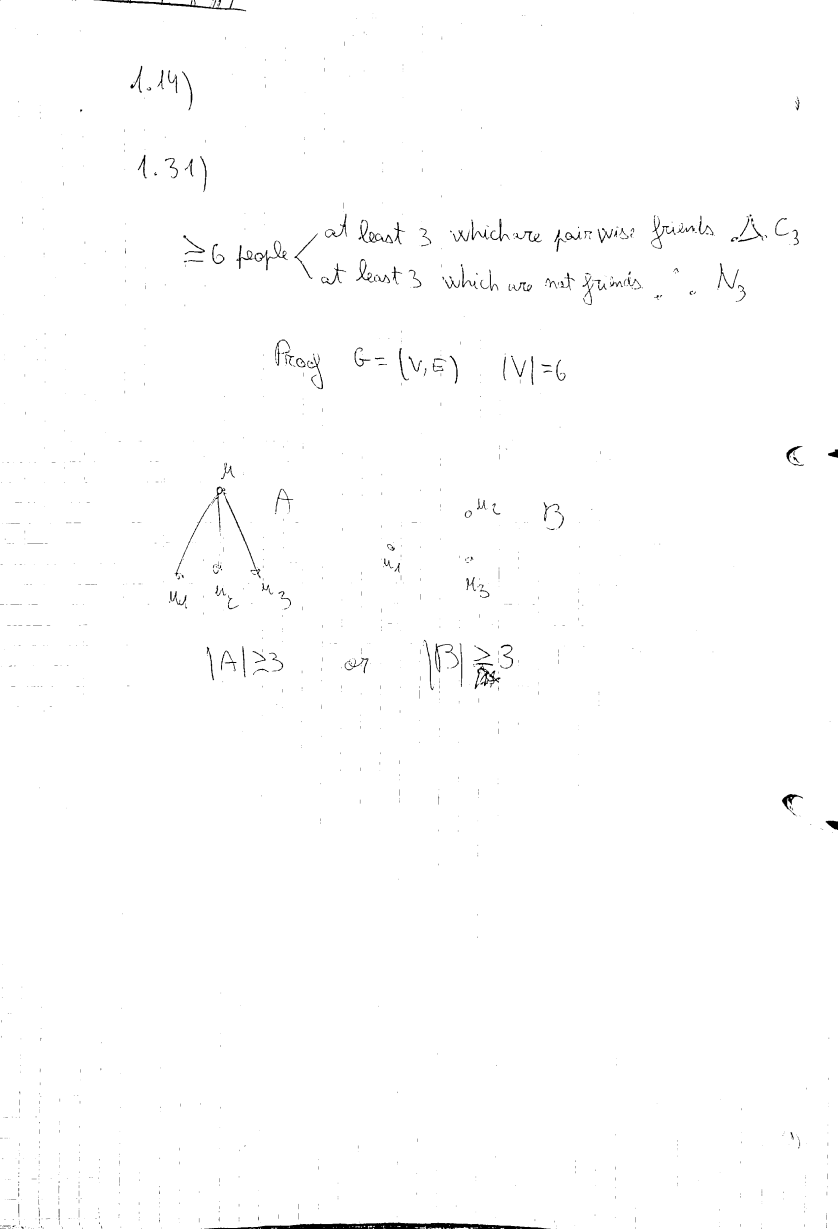 1.14)
1.31)
≥6 people
at least 3 which are pairwise friends C3
at least 3 which are not friends N3
Proof G=(V,E) |V|=6
u A u2 B
u1
u1 u2 u3 u3
|A|≥3 or |B|≥3